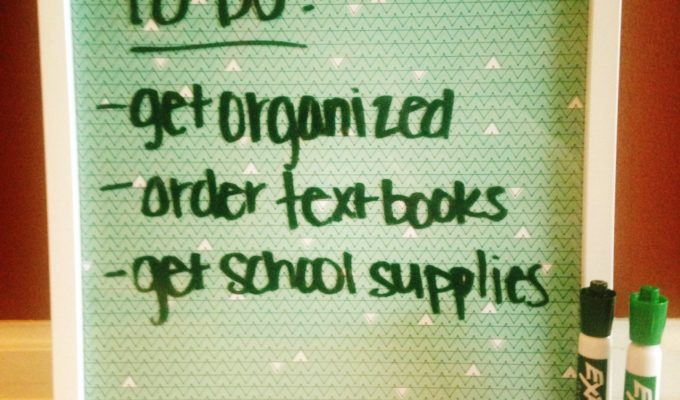 TO DO:
- get organized
- order textbooks
- get school supplies